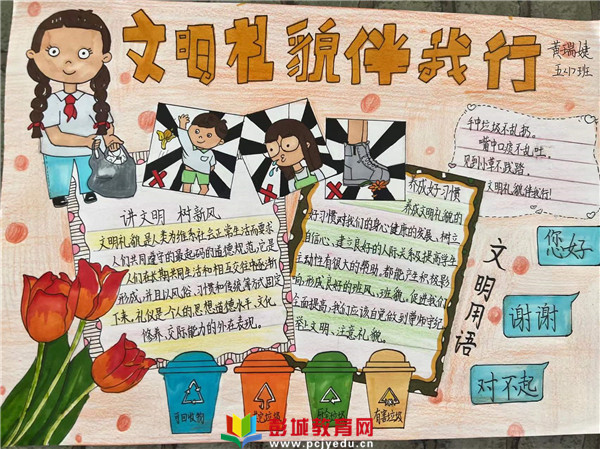 文明礼貌伴我行
黄瑞婕
五（17）班
手中垃圾不乱扔。
嘴中口痰不乱吐。
见到小草不践踏
文明礼貌伴我行！
讲文明 树新风
文明礼貌是人类为维系社会正常生活而要求
人们共同遵守的最起码的道德规范，它是
人们在长期共同生活和相互交往中逐渐
形成，并且以风俗、习惯和传统等方式固定
下来。礼仪是个人的思想道德水平、文化
修养、交际能力的外在表现。
养成好习惯
养成文明礼貌的
好习惯对我们的身心健康的发展、树立
自信心、建立良好的人际关系及提高学生
主动性有很大的帮助，都能产生积极影
响，形成良好的班风、班貌，促进我们
全面提高。我们应该自觉做到
举止文明、注意礼貌。
文明用语
您好
谢谢
对不起
可回收物
有害垃圾
彭城教育网
www.pcjyedu.cn